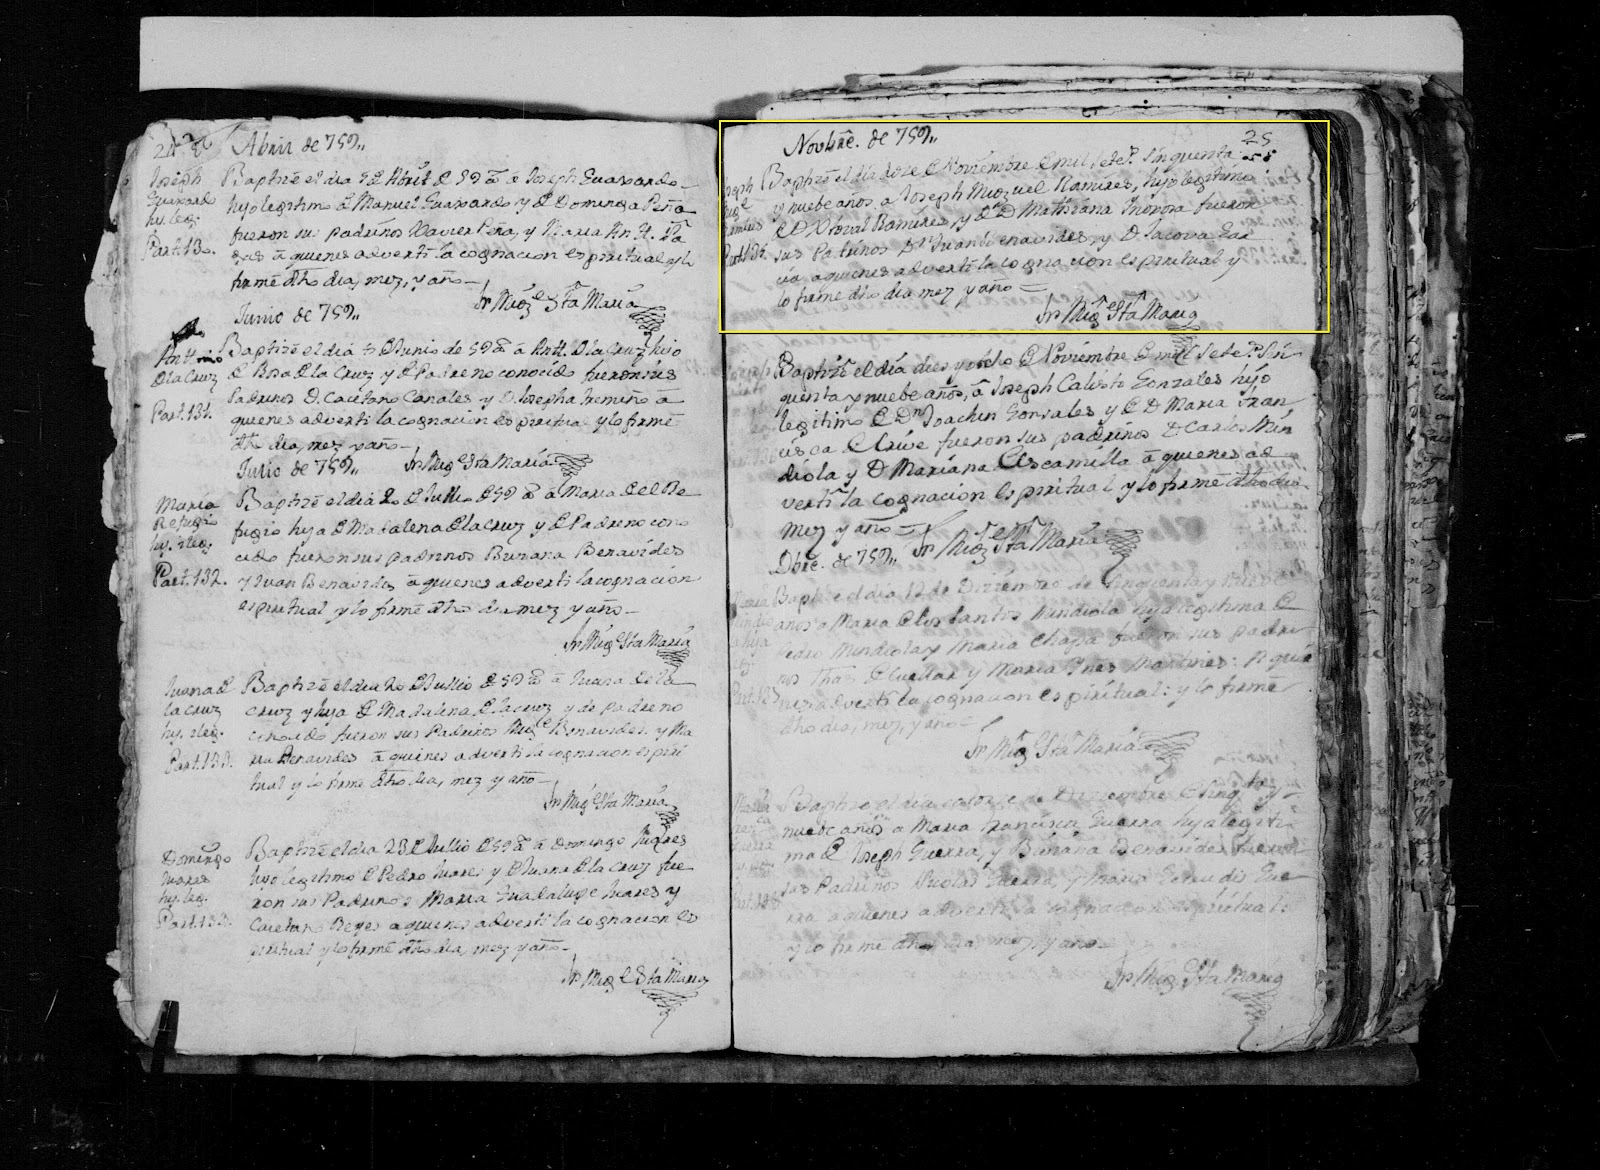 24
Abril de 759,,
Joseph
Guaxardo
hij. leg.
Part. 130.
Baptizé el dia 5 d Abril d 59 as â Joseph Guaxardo
hijo legitimo d Manuel Guaxardo y d Dominga Peña
fueron sus padrinos Xavier Peña, y Maria
â quienes adverti la cognacion espiritual y lo
firmé dho dia, mez, y año —
Fr Migl d Sta Maria
Junio de 759,,
Antto
d la Cruz
Part. 131.
Baptizé el dia d Junio de 59 as â Antt. d la Cruz hijo
d Rosa d la Cruz y d Padre no conocido fueron sus
Padrinos D. Caetano Canales y D. Josepha Tremiño â
quienes adverti la cognacion espiritual y lo firmé
dho dia, mez y año —
Fr Migl d Sta Maria
Julio de 759,,
Maria
Refugio
hij. ileg.
Part. 132.
Baptizé el dia 2 d Jullio d 59 as â Maria d el Re
fugio hija d Madalena d la Cruz y d Padre no cono
cido fueron sus padrinos Buviana Benavides
y Juan Benavides â quienes adverti la cognacion
espiritual y lo firmé dho dia mez y año —
Fr Migl d Sta Maria
Juana d
la Cruz
hij. ileg.
Part. 133.
Baptizé el dia 20 d Jullio d 59 as â Juana de la
Cruz y hija d Madalena d la Cruz y de padre no
conosido fueron sus Padrinos Migl Benavides y Ma
ria Benavides â quienes adverti la cognacion espiri
tual y lo firmé dho dia, mez y año —
Fr Migl d Sta Maria
Domingo
Juares
hij. leg.
Part. 133.
Baptizé el dia 23 d Jullio d 59 as â Domingo Juares
hijo legitimo d Pedro Juares y d Juana d la Cruz fue
ron sus Padrinos Maria Guadalupe Juares y
Caietano Reyes a quienes adverti la cognacion es
piritual y lo firmé dho dia, mez y año —
Fr Migl d Sta Maria
Novbre. de 759,,
25
Joseph
Migl
Ramires
Part. 13
Baptizé el dia doze d Noviembre d mil sete.s sinquenta
y nuebe años a Joseph Miguel Ramires, hijo legitimo
d D Xtoval Ramires y d D Mathiana Ynoxosa fueron
sus Patrinos Dn Juan Benavides, y D Jacova Gar
cia, a quienes adverti la cognacion espiritual y
lo firmé dho dia mez y año =
Fr Migl d Sta Maria
Baptizé el dia dies y ocho d Noviembre d mil sete.s sin
quenta y nuebe años, â Joseph Calisto Gonzales hijo
legitimo d Dn Joachin Gonsales y d D Maria Fran
cisca d Uribe fueron sus padrinos D Carlos Min
diola y D Mariana Escamilla â quienes ad
verti la cognacion espiritual y lo firmé dho dia
mez y año =
Fr Migl d Sta Maria
Dbre. de 759,,
Maria
Mindio
la hija
Part. 13
Baptizé el dia 12 de Diziembre de sinquenta y nuebe
años a Maria d los Santos Mindiola hija legitima d
Pedro Mindiola y Maria Chapa fueron sus padri
nos Thas d Cuellar y Maria Ynes Martines: A quie
nes adverti la cognacion espiritual: y lo firmé
dho dia, mez, y año =
Fr Migl d Sta Maria
Maria
Guerra
Part. 13
Baptizé el dia catorce de Diziembre d sinqta y
nuebe años a Maria Francisca Guerra hija legiti
ma d Joseph Guerra, y Buviana Benavides fueron
sus Padrinos Nicolas Guerra, y Maria Gertrudis Gue
rra a quienes adverti la cognacion espiritual
y lo firmé dho dia, mez, y año =
Fr Migl d Sta Maria